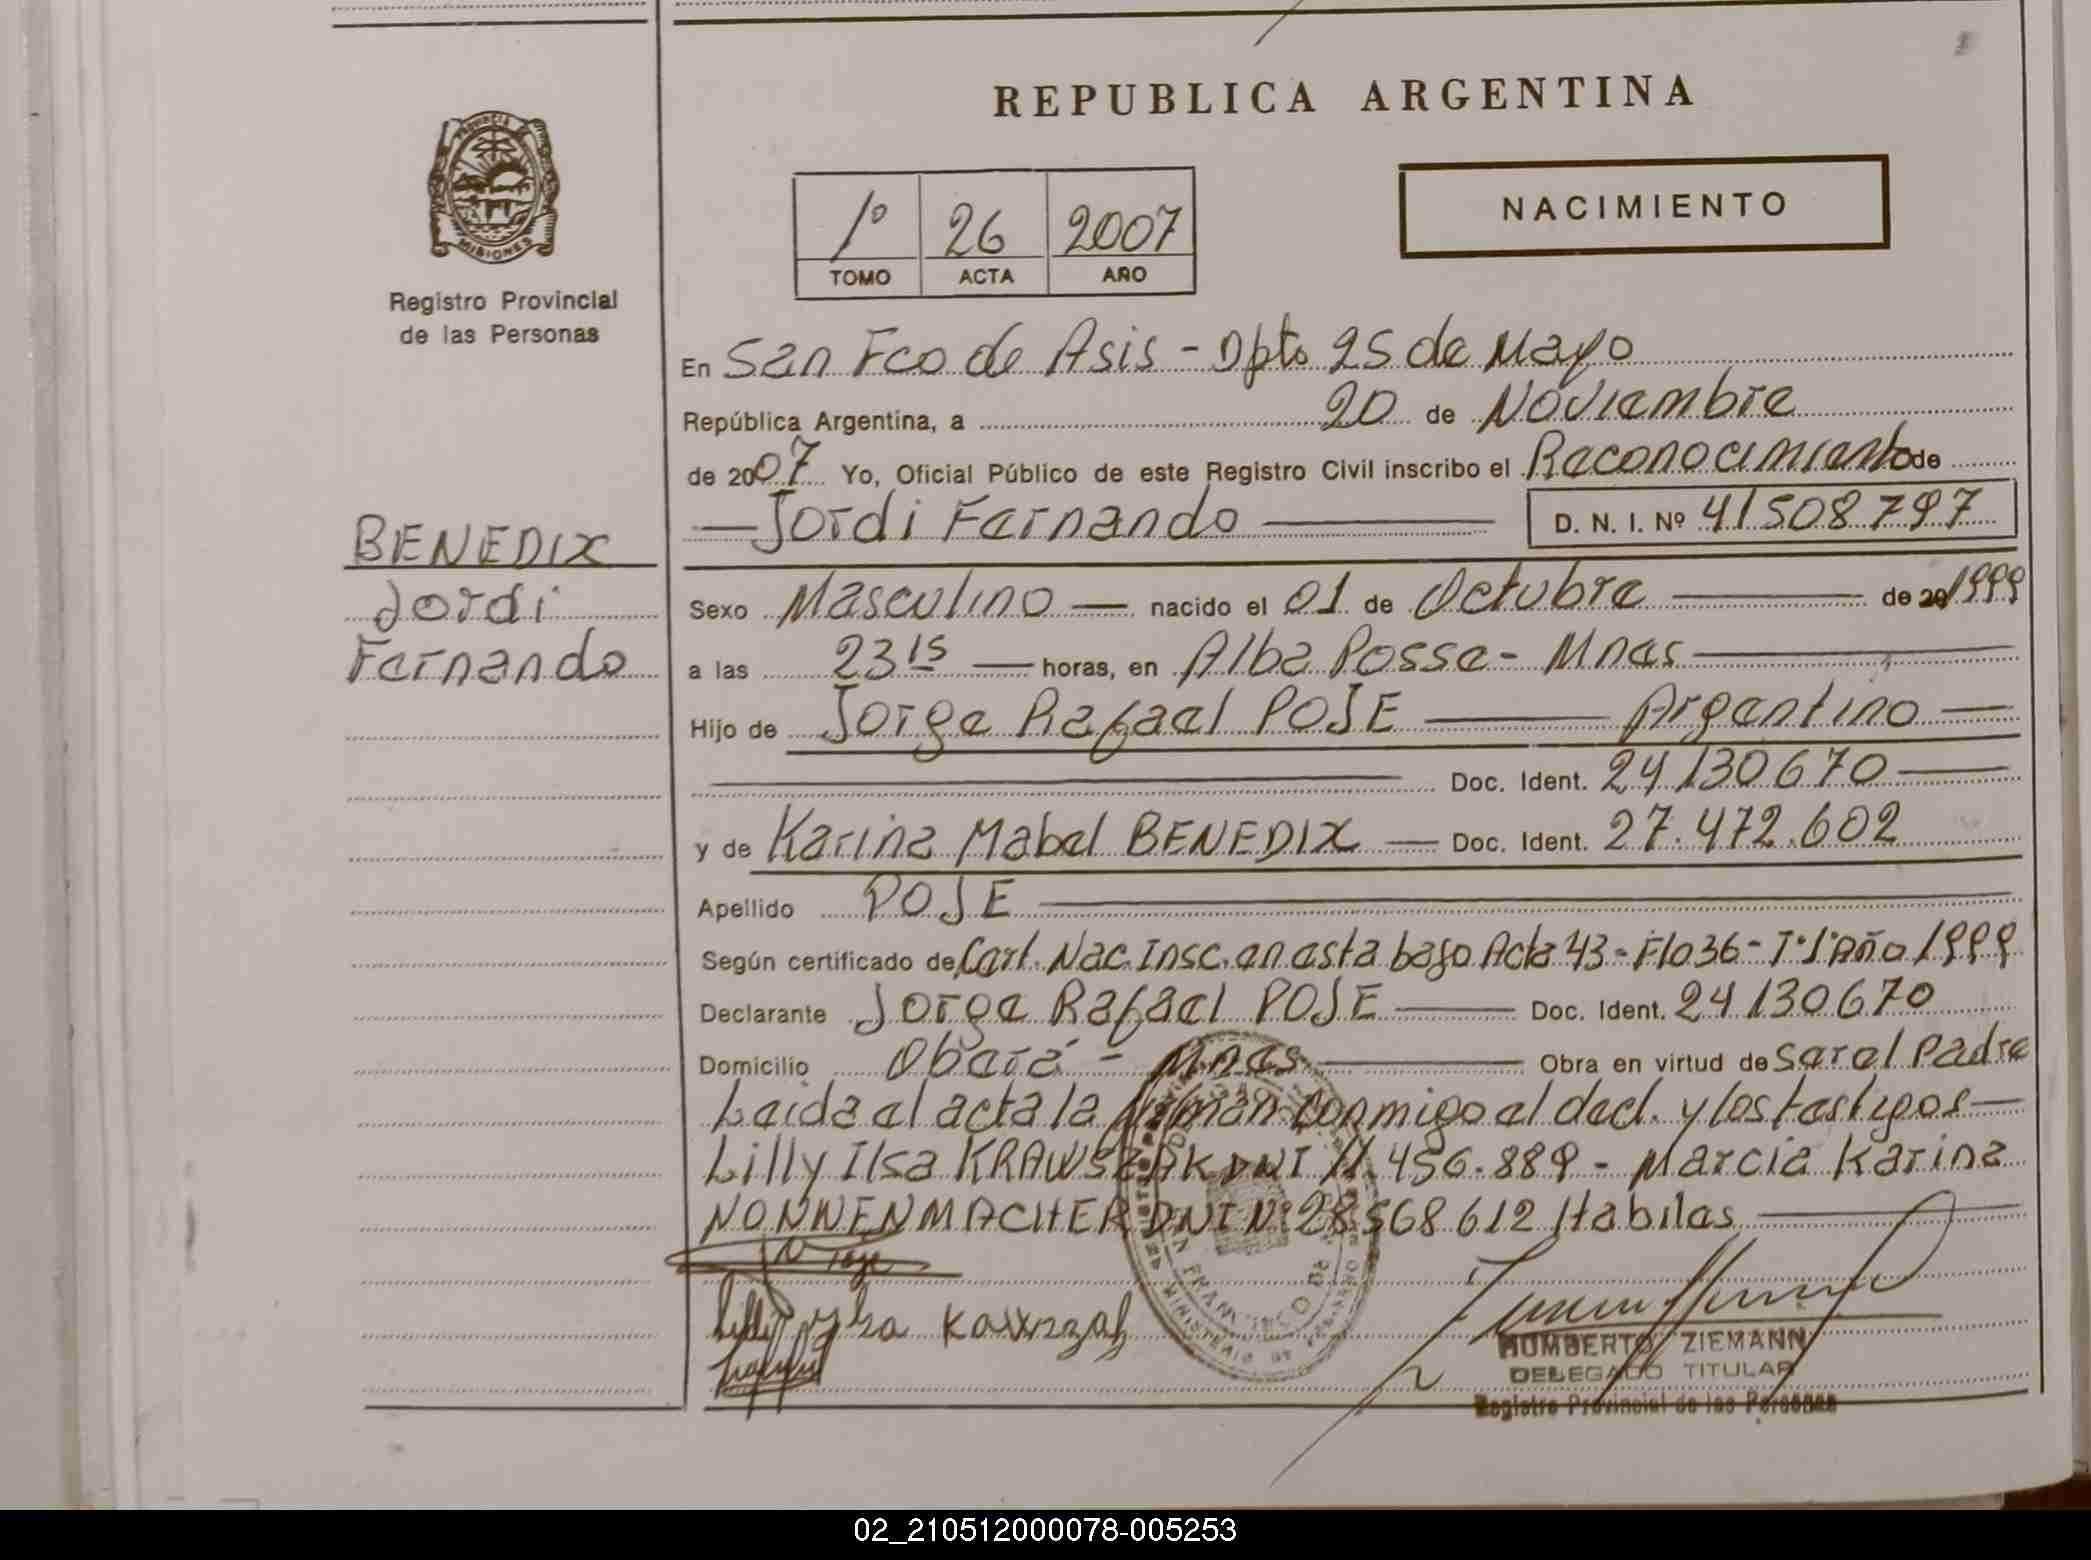 REPUBLICA ARGENTINA
PROVINCIA DE
MISIONES
Registro Provincial
de las Personas
1º 26 2007
TOMO ACTA AÑO
NACIMIENTO
En San Fco de Asis - Dpto 25 de Mayo
República Argentina, a 20 de Noviembre
de 2007 Yo, Oficial Público de este Registro Civil inscribo el Reconocimiento de
Jordi Fernando D. N. I. Nº 41508797
BENEDIX
Jordi
Fernando
Sexo Masculino nacido el 01 de Octubre de 20 1999
a las 23 15 horas, en Alba Posse - Mnes
Hijo de Jorge Rafael POSE Argentino
Doc. Ident. 24130670
y de Karina Mabel BENEDIX Doc. Ident. 27.472.602
Apellido POSE
Según certificado de Cert. Nac. Insc. en esta bajo Acta 43 - Flo 36 - Tº 1º Año 1999
Declarante Jorge Rafael POSE Doc. Ident. 24130670
Domicilio Oberá - Mnes Obra en virtud de Ser el Padre
Leida el acta la firman conmigo el decl. y los testigos
Lilly Ilsa KRAWSZAK DNI 11.456.889 - Marcia Karina
NONNENMACHER DNI Nº 28568612 Habiles
HUMBERTO ZIEMANN
DELEGADO TITULAR
Registro Provincial de las Personas
02_210512000078-005253